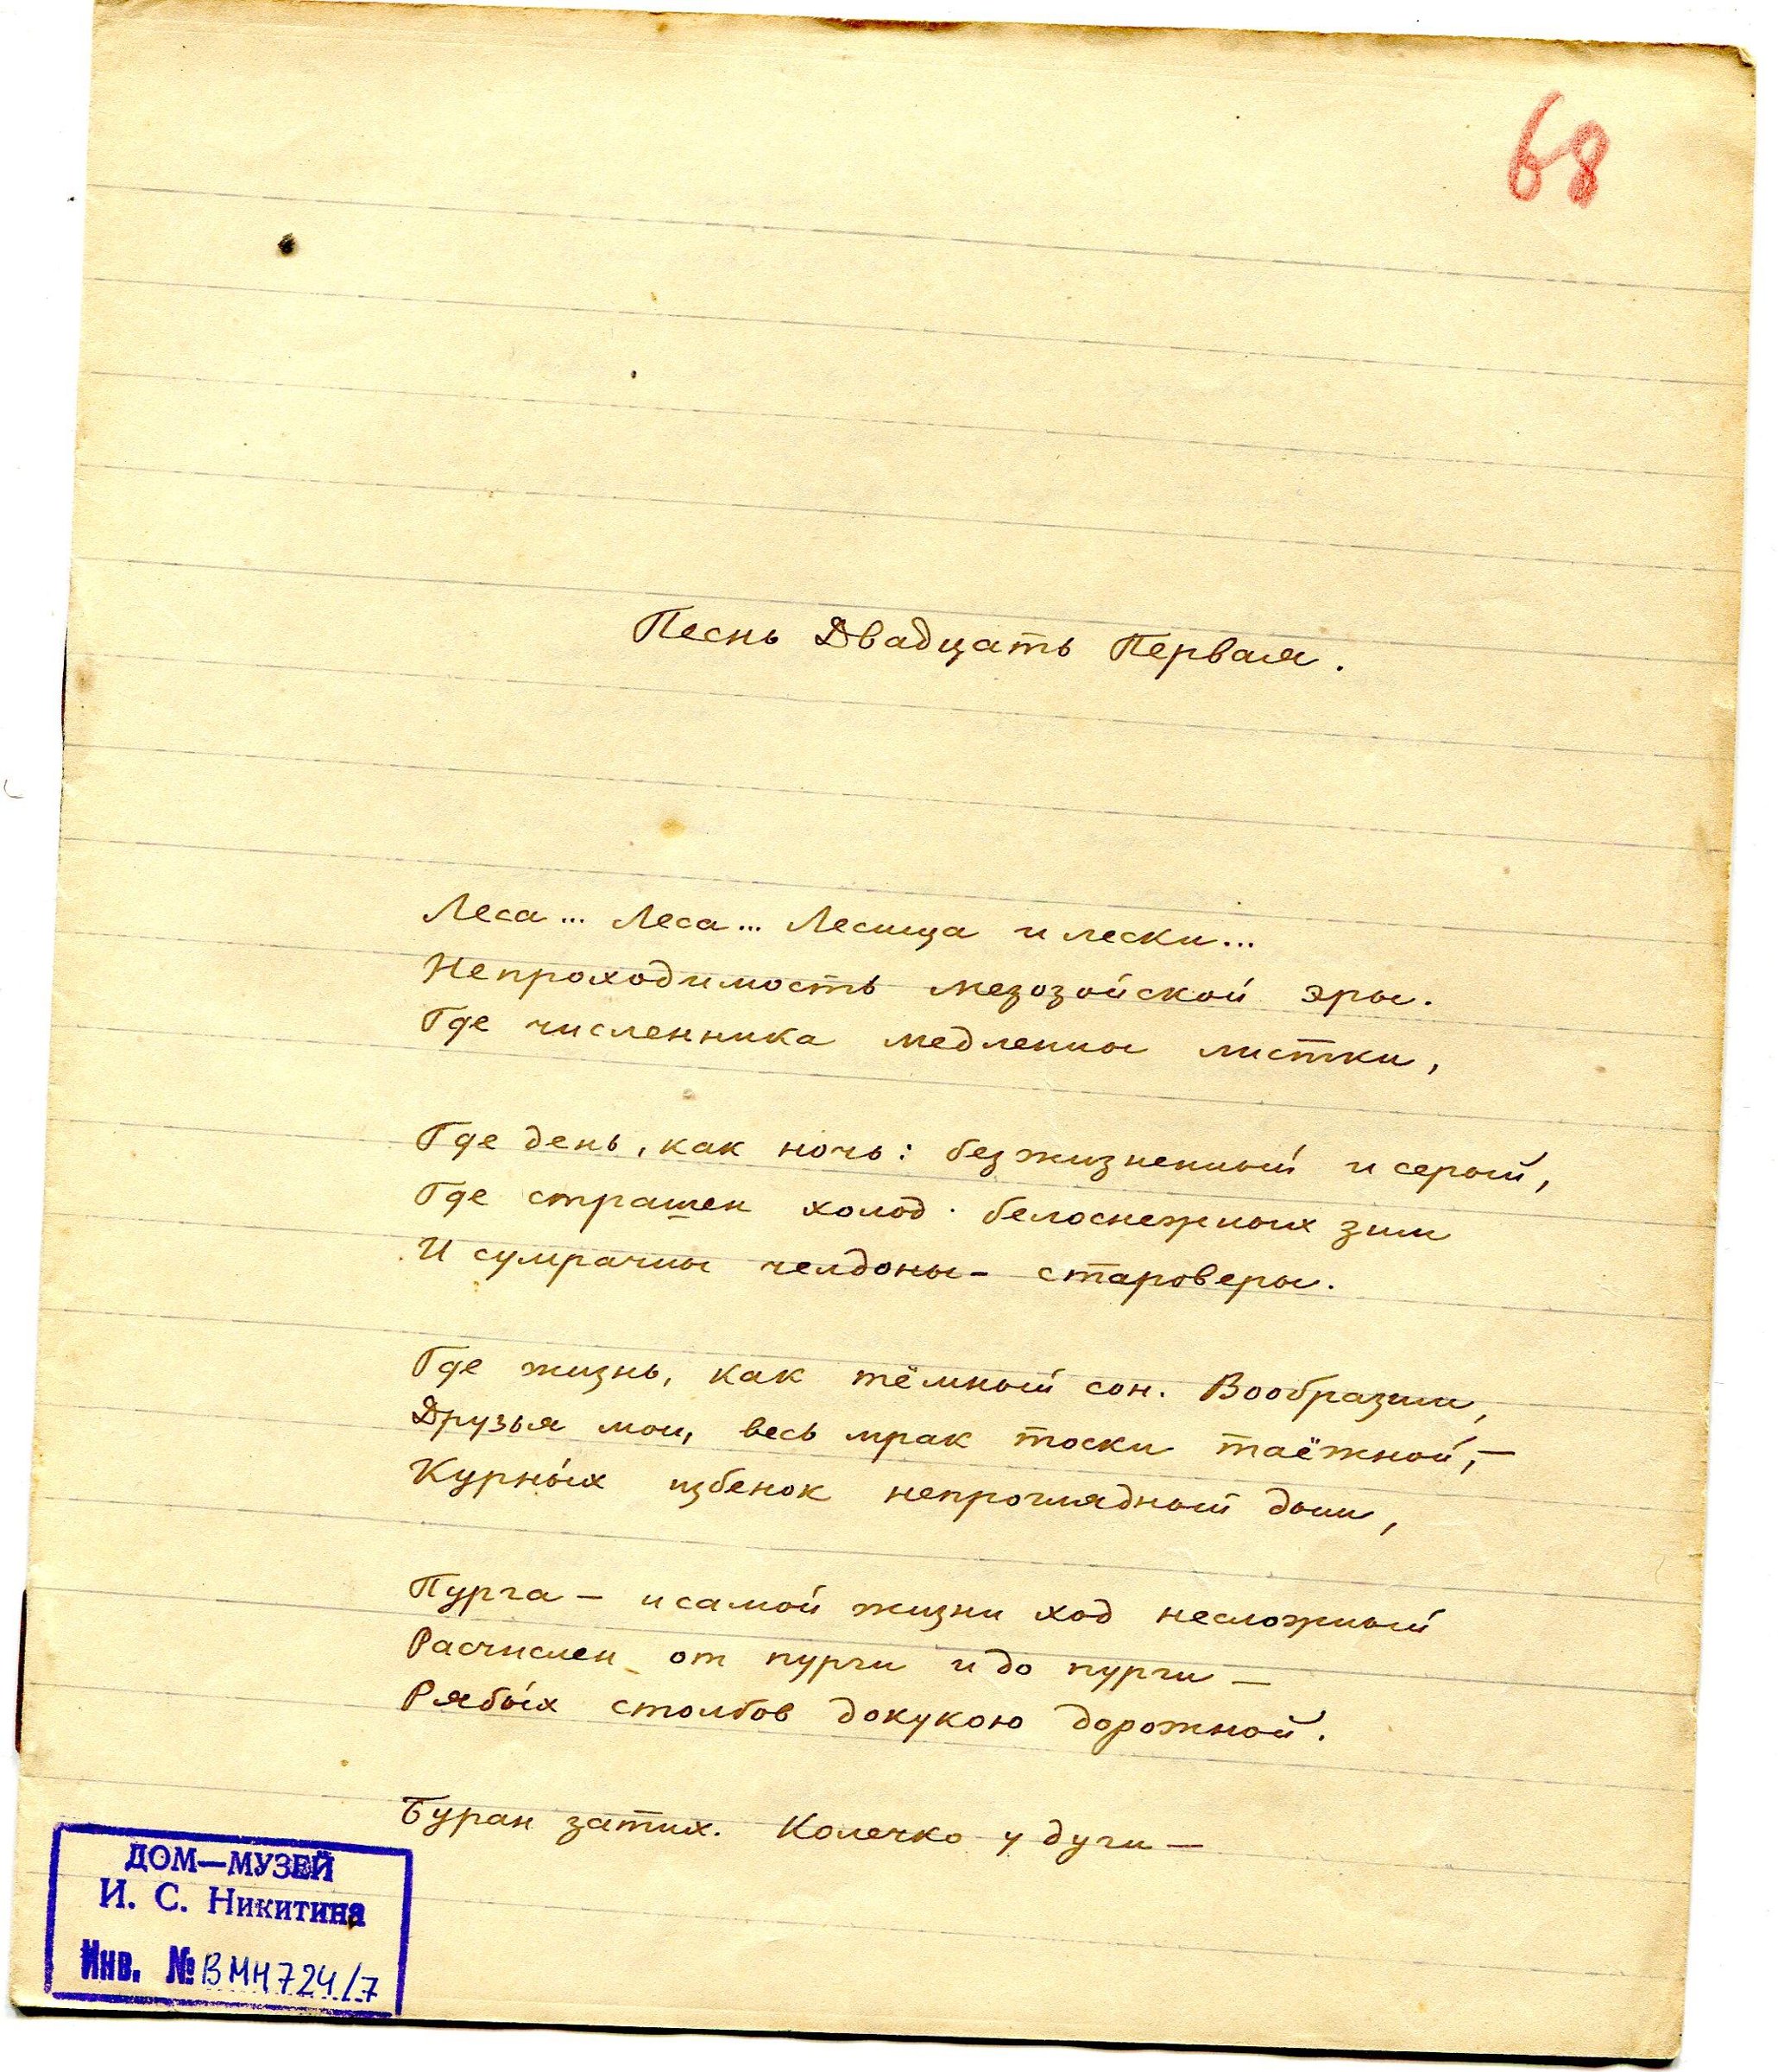 68
Песнь Двадцать Первая.
Леса... Леса... Лесища и лески...
Непроходимость мезозойской эры.
Где численника медленны листки,
Где день, как ночь: безжизненный и серый,
Где страшен холод белоснежных зим
И сумрачны челдоны - староверы.
Где жизнь, как тёмный сон. Вообразим,
Друзья мои, весь мрак тоски таёжной, —
Курны́х избенок непроглядный дым,
Пурга — и самой жизни ход несложный
Расчислен от пурги и до пурги —
Рябы́х столбов докукою дорожной.
Буран затих. Колечко у дуги —
ДОМ—МУЗЕЙ
И. С. Никитина
Инв. № ВМН 724/7